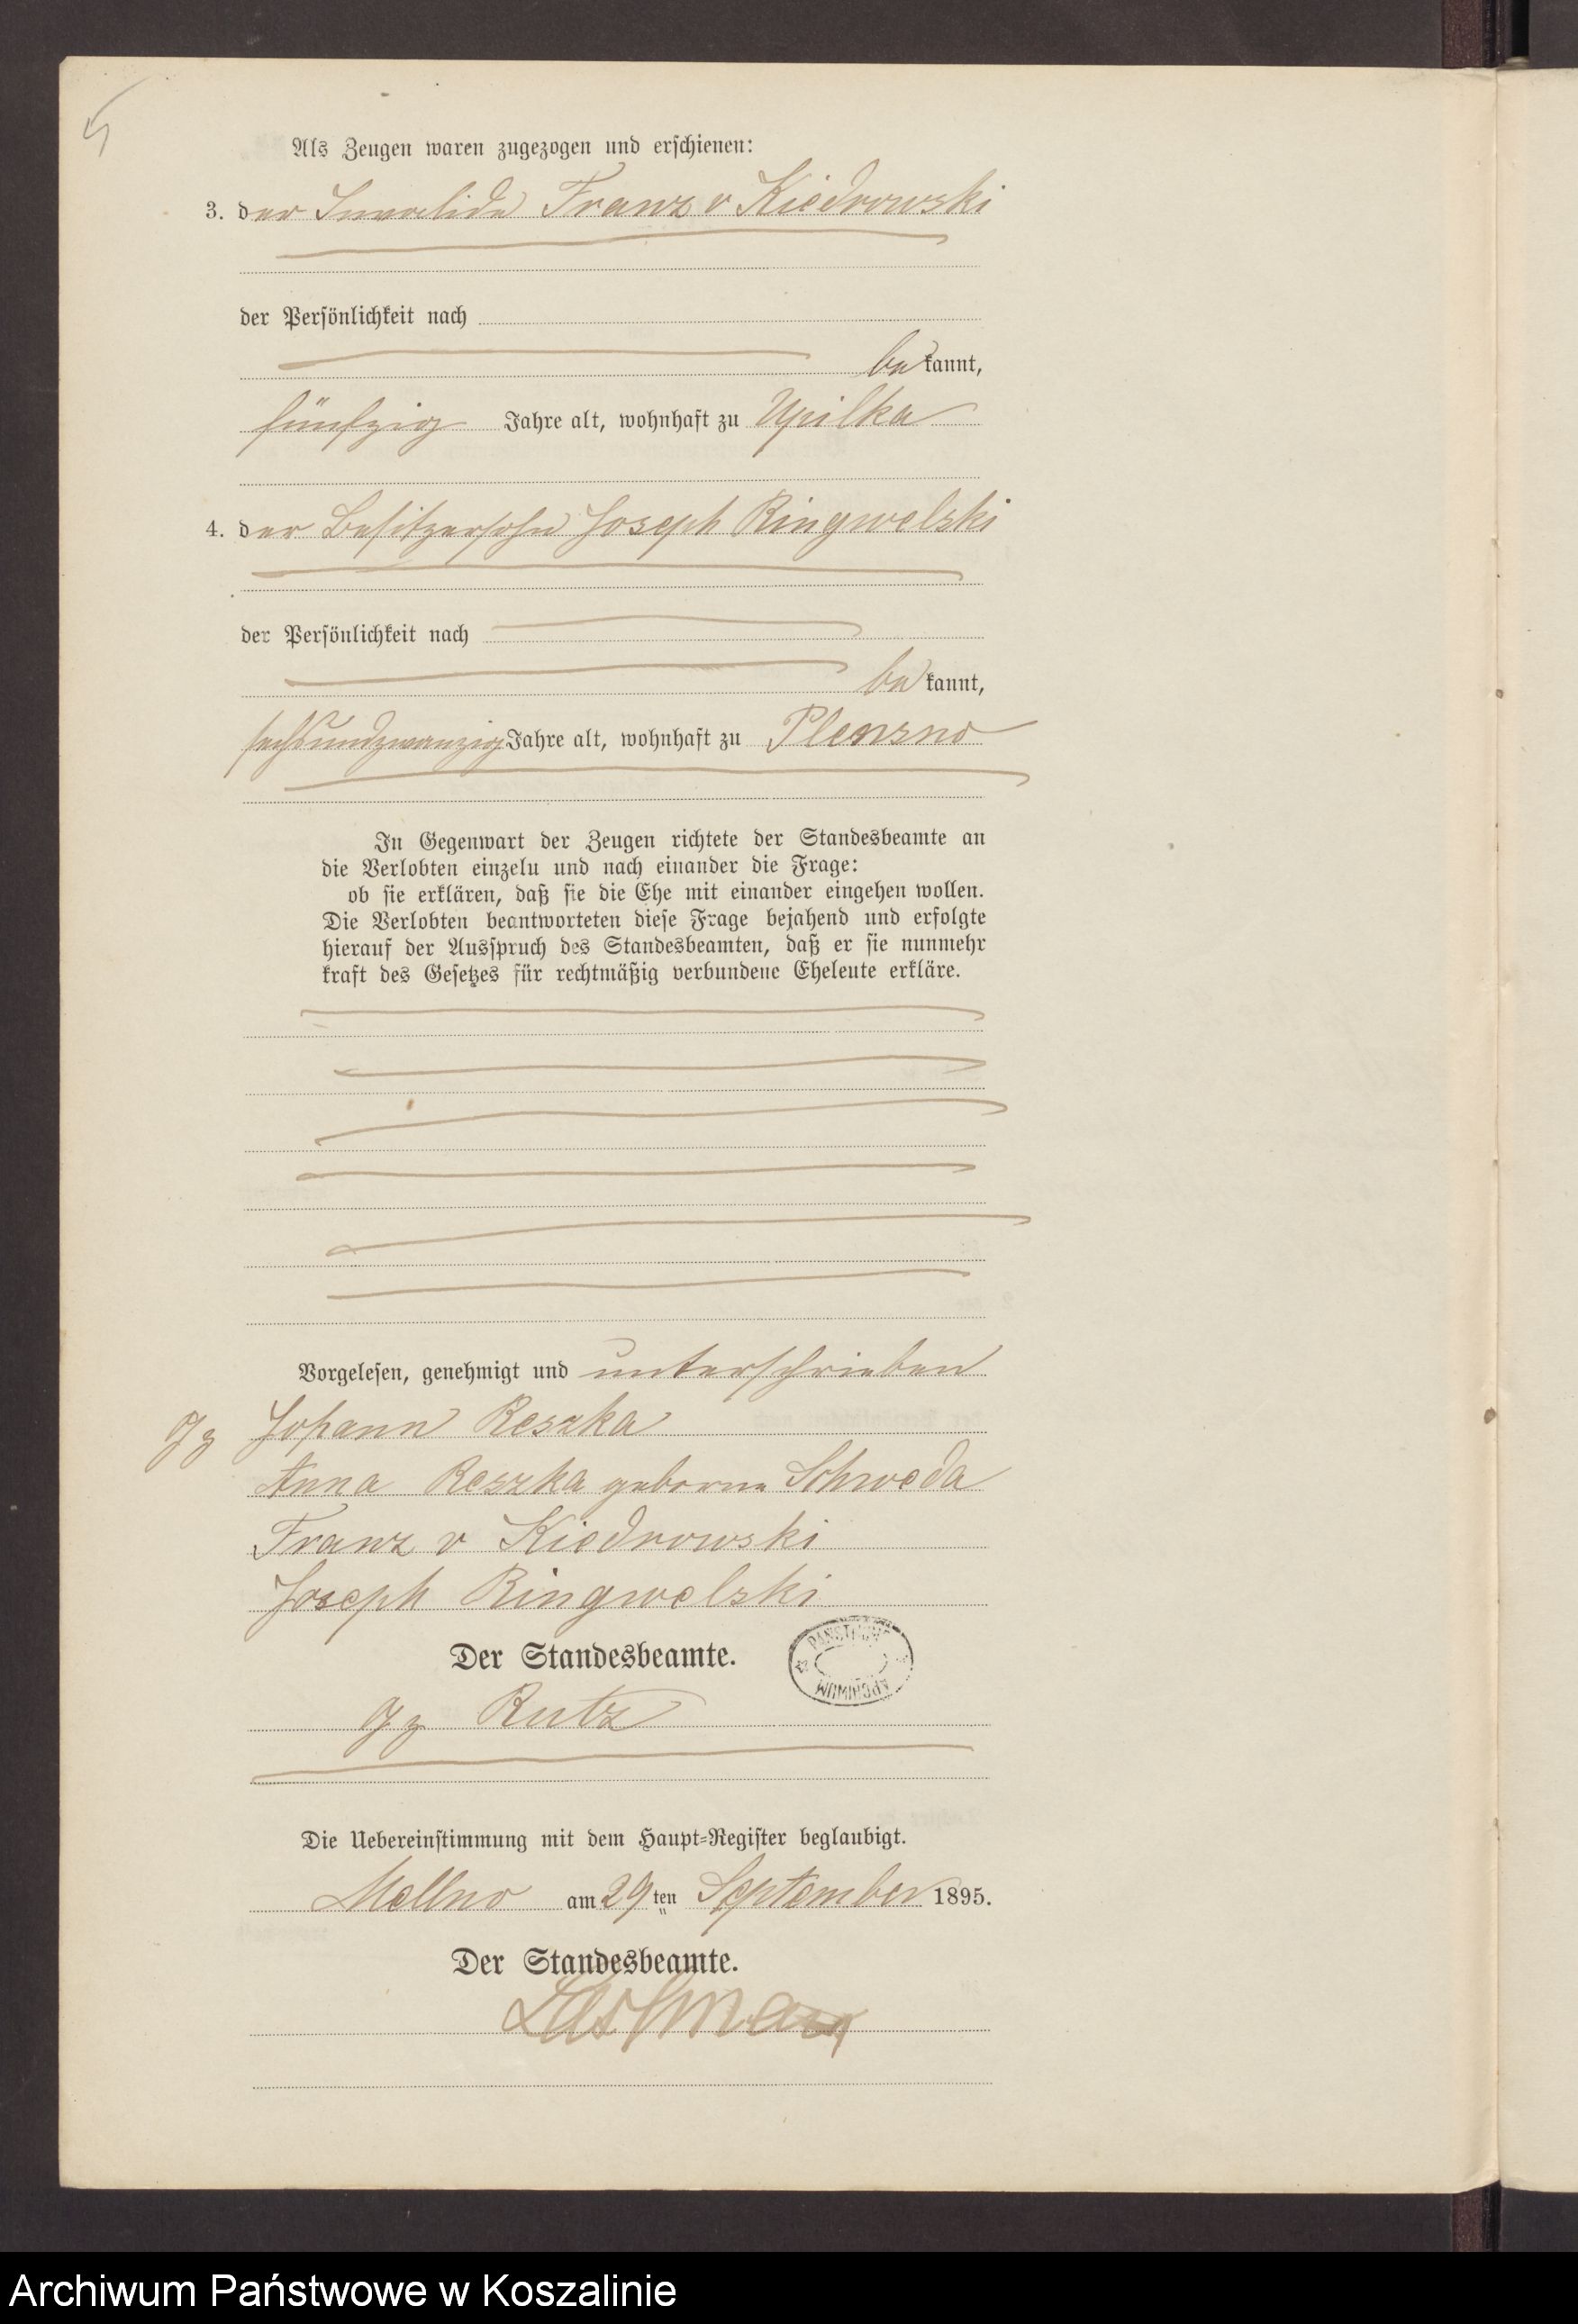 Als Zeugen waren zugezogen und erschienen:
3. der Invalide Franz v Kiedrowski
der Persönlichkeit nach
be kannt,
fünfzig Jahre alt, wohnhaft zu Upilka
4. der Besitzersohn Joseph Ringwelski
der Persönlichkeit nach
be kannt,
sechsundzwanzig Jahre alt, wohnhaft zu Plensno
In Gegenwart der Zeugen richtete der Standesbeamte an
die Verlobten einzeln und nach einander die Frage:
ob sie erklären, daß sie die Ehe mit einander eingehen wollen.
Die Verlobten beantworteten diese Frage bejahend und erfolgte
hierauf der Ausspruch des Standesbeamten, daß er sie nunmehr
kraft des Gesetzes für rechtmäßig verbundene Eheleute erkläre.
Vorgelesen, genehmigt und unterschrieben
gz Johann Reszka
Anna Reszka geborene Schweda
Franz v Kiedrowski
Joseph Ringwelski
Der Standesbeamte.
gz Rutz
Die Uebereinstimmung mit dem Haupt-Register beglaubigt.
Mellno am 29ten September 1895.
Der Standesbeamte.
Archiwum Państwowe w Koszalinie